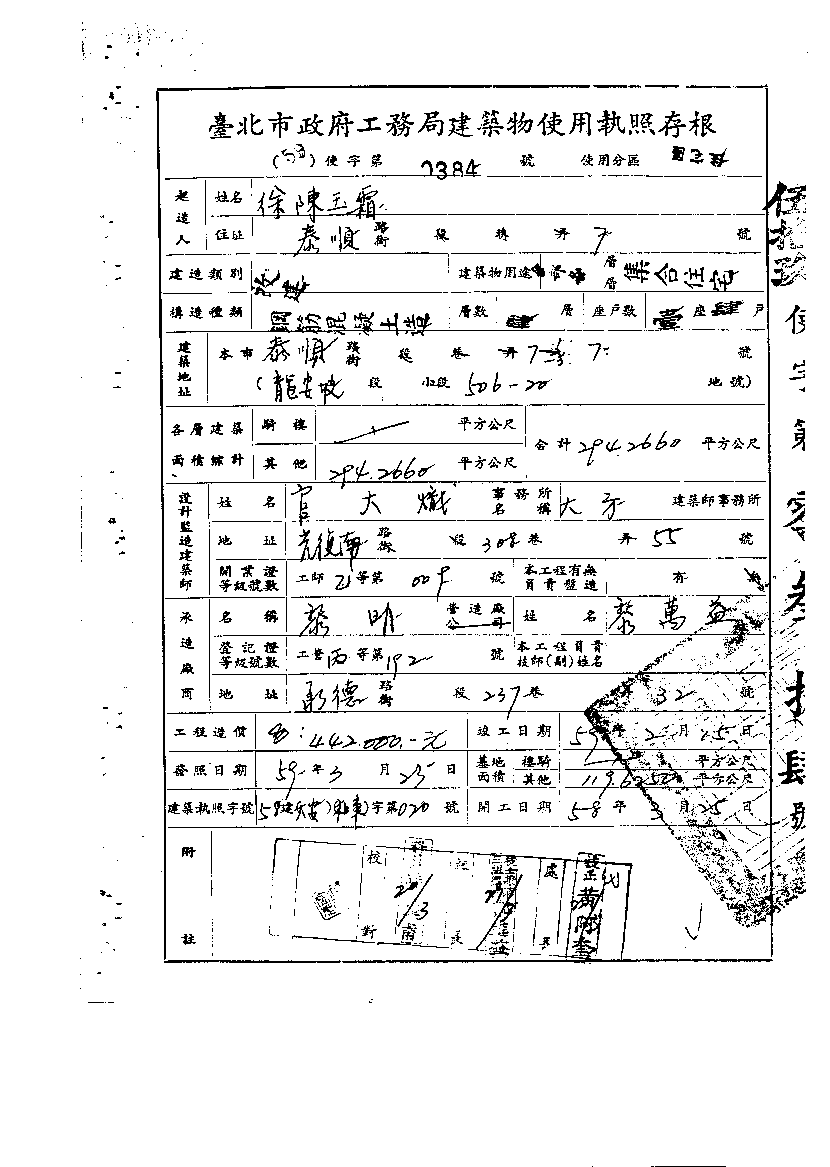 臺北市政府工務局建築物使用執照存根
(59)使字第 0384 號 使用分區 住宅區
起造人 姓名 徐陳玉霜
住址 泰順 路街 段 巷 弄 7 號
建造類別 改建 建築物用途 層層 集合住宅
構造種類 鋼筋混凝土造 層數 肆 層 座戶數 壹 座 肆 戶
建築地址 本市 泰順 路街 段 巷 弄 7 7 號
(龍安坡 段 小段 506-20 地號)
各層建築面積總計 騎樓 平方公尺 合計 294.2660 平方公尺
其他 294.2660 平方公尺
設計監造建築師 姓名 官大熾 事務所名稱 大 建築師事務所
地址 光復南 路街 段 308 巷 弄 55 號
開業證等級號數 工師 等第 號 本工程有無負責監造 有 無
承造廠商 名稱 黎明 營造廠公司 姓名 黎萬益
登記證等級號數 工營丙等第192 號 本工程負責技師(副)姓名
地址 德 路街 段 237 巷 弄 32 號
工程造價 442.000.-元 竣工日期 59年2月25日
發照日期 59年3月25日 基地面積 騎樓 平方公尺
其他 平方公尺
建築執照字號 字第020號 開工日期 58年3月25日
附註
校對 20/3
處長
伍拾玖使字第零參捌肆號